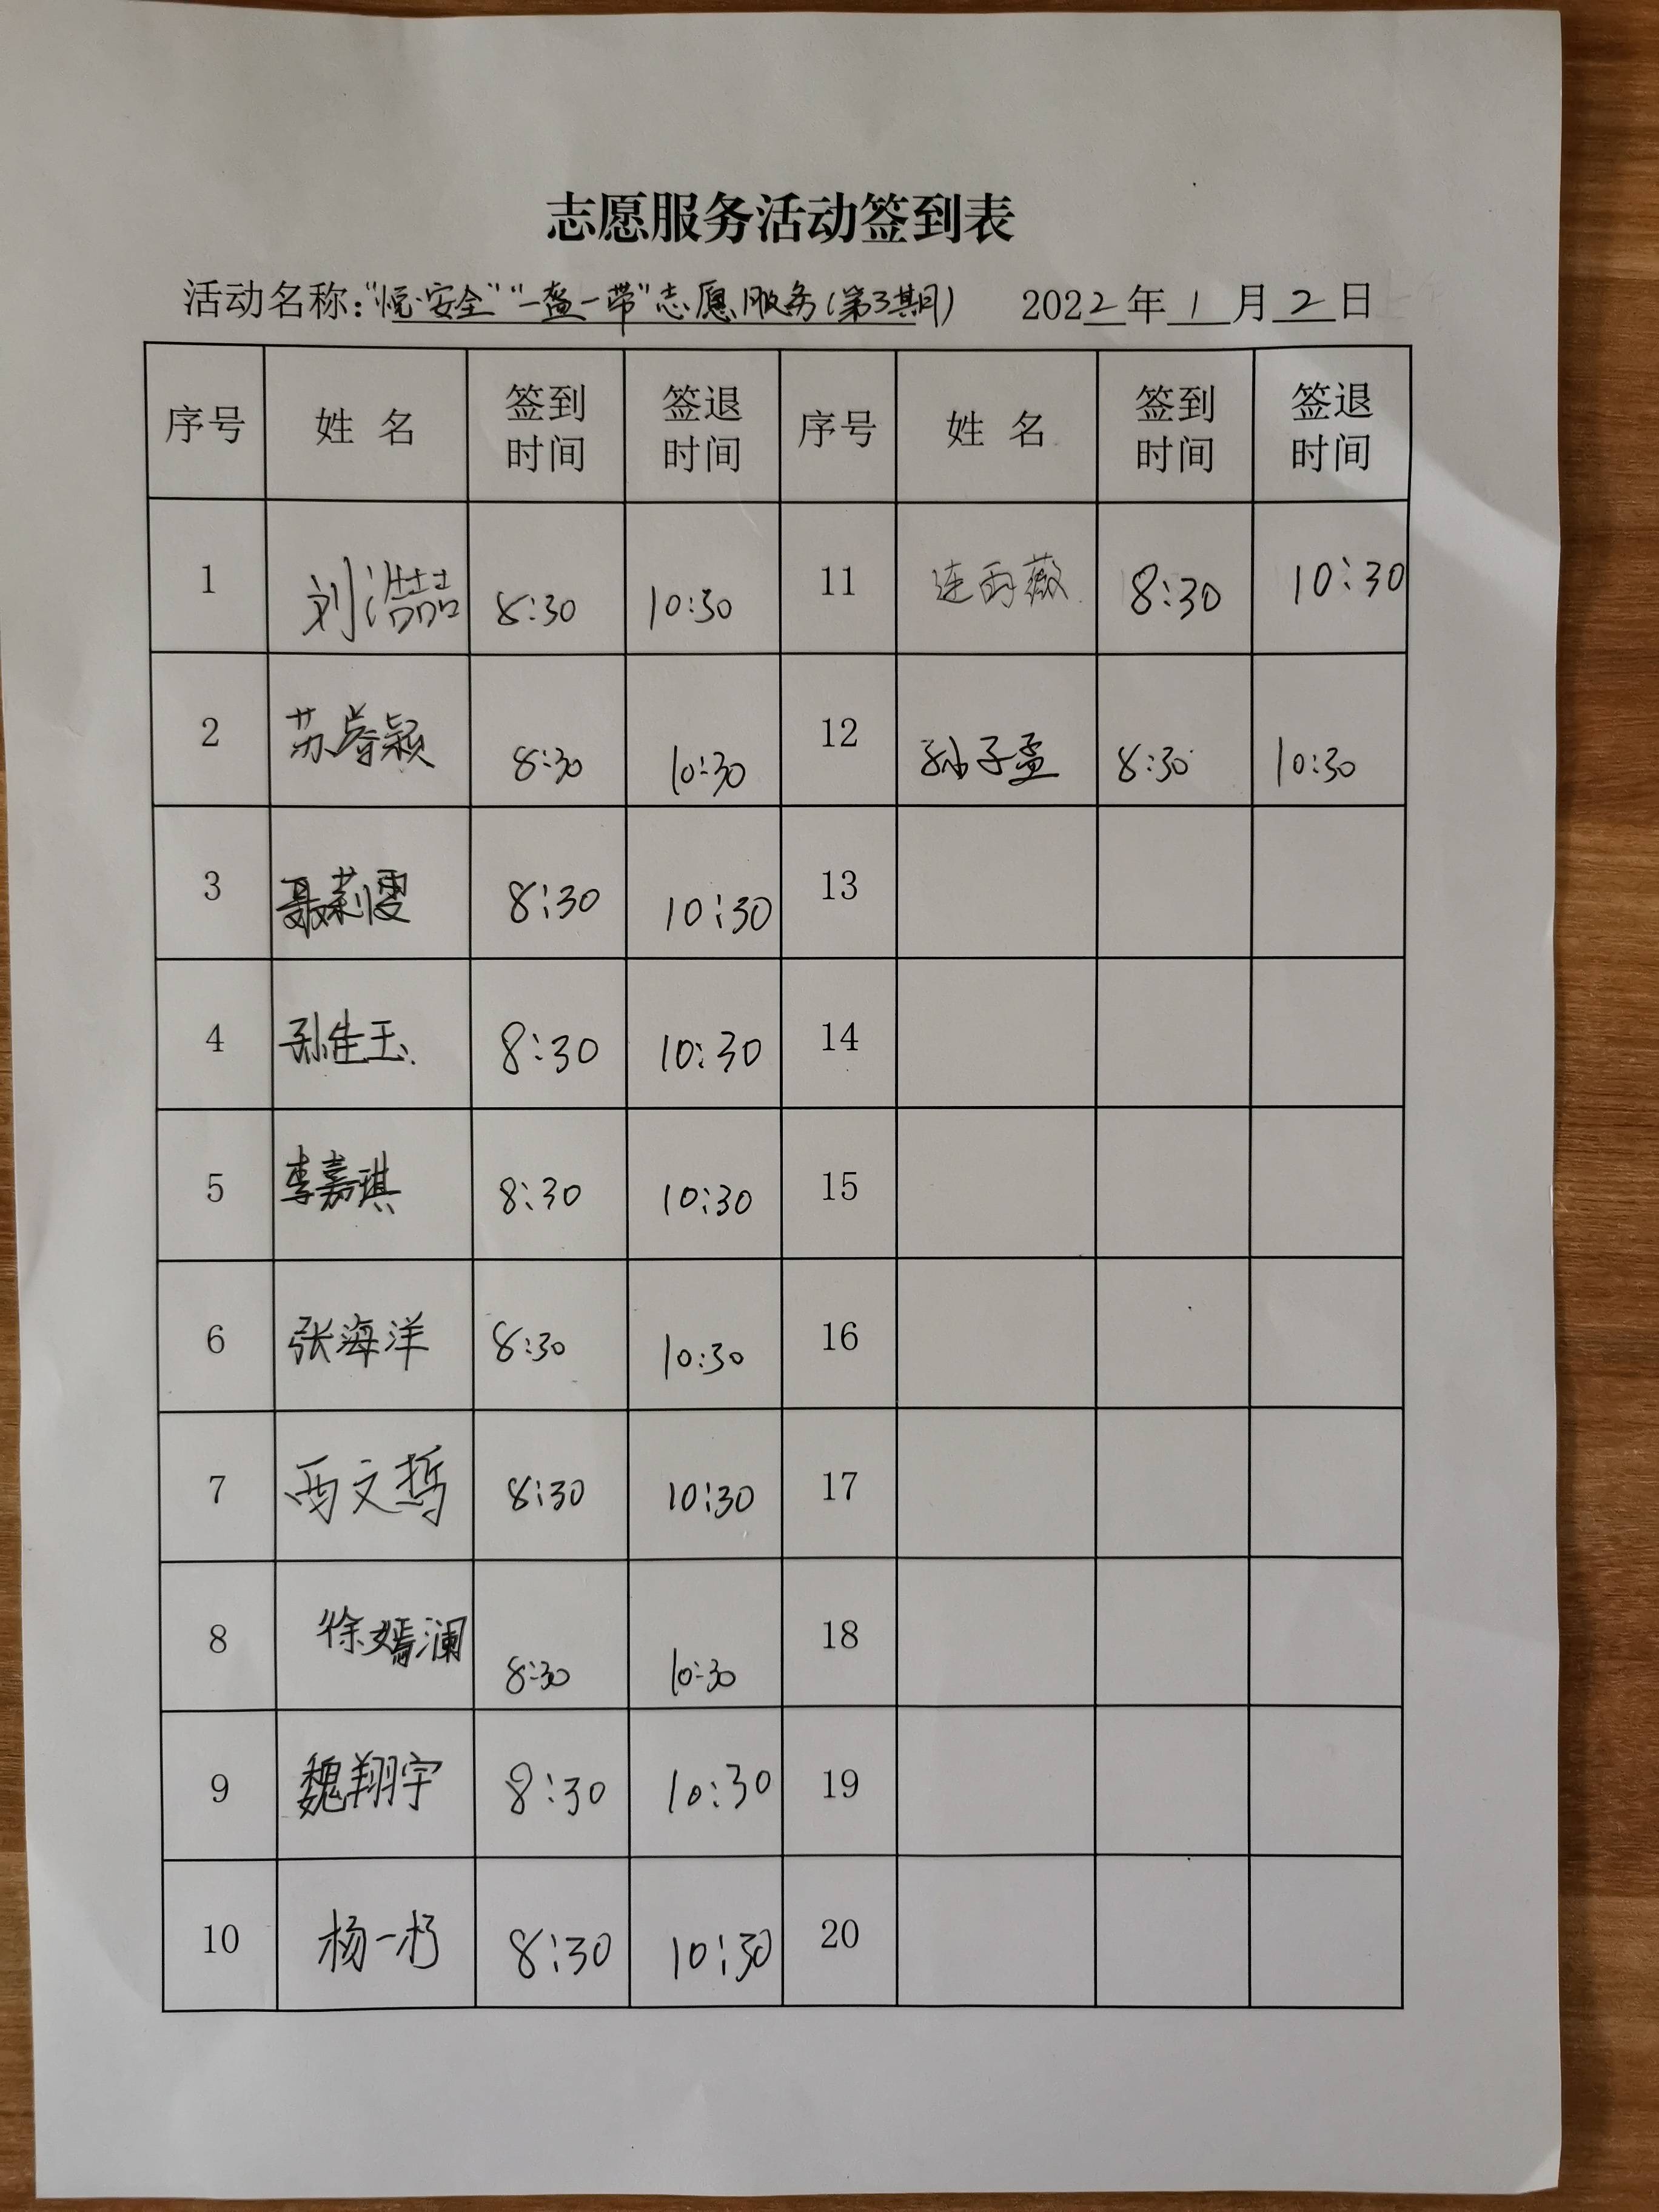 志愿服务活动签到表
活动名称:"悦·安全""一盔一带"志愿服务(第3期) 2022年1月2日
序号 姓名 签到时间 签退时间 序号 姓名 签到时间 签退时间
1 刘浩喆 8:30 10:30 11 连雨薇 8:30 10:30
2 苏睿颖 8:30 10:30 12 孙子孟 8:30 10:30
3 聂莉雯 8:30 10:30 13
4 孙佳玉 8:30 10:30 14
5 李嘉琪 8:30 10:30 15
6 张海洋 8:30 10:30 16
7 文哲 8:30 10:30 17
8 徐嫣澜 8:30 10:30 18
9 魏翔宇 8:30 10:30 19
10 杨一 8:30 10:30 20